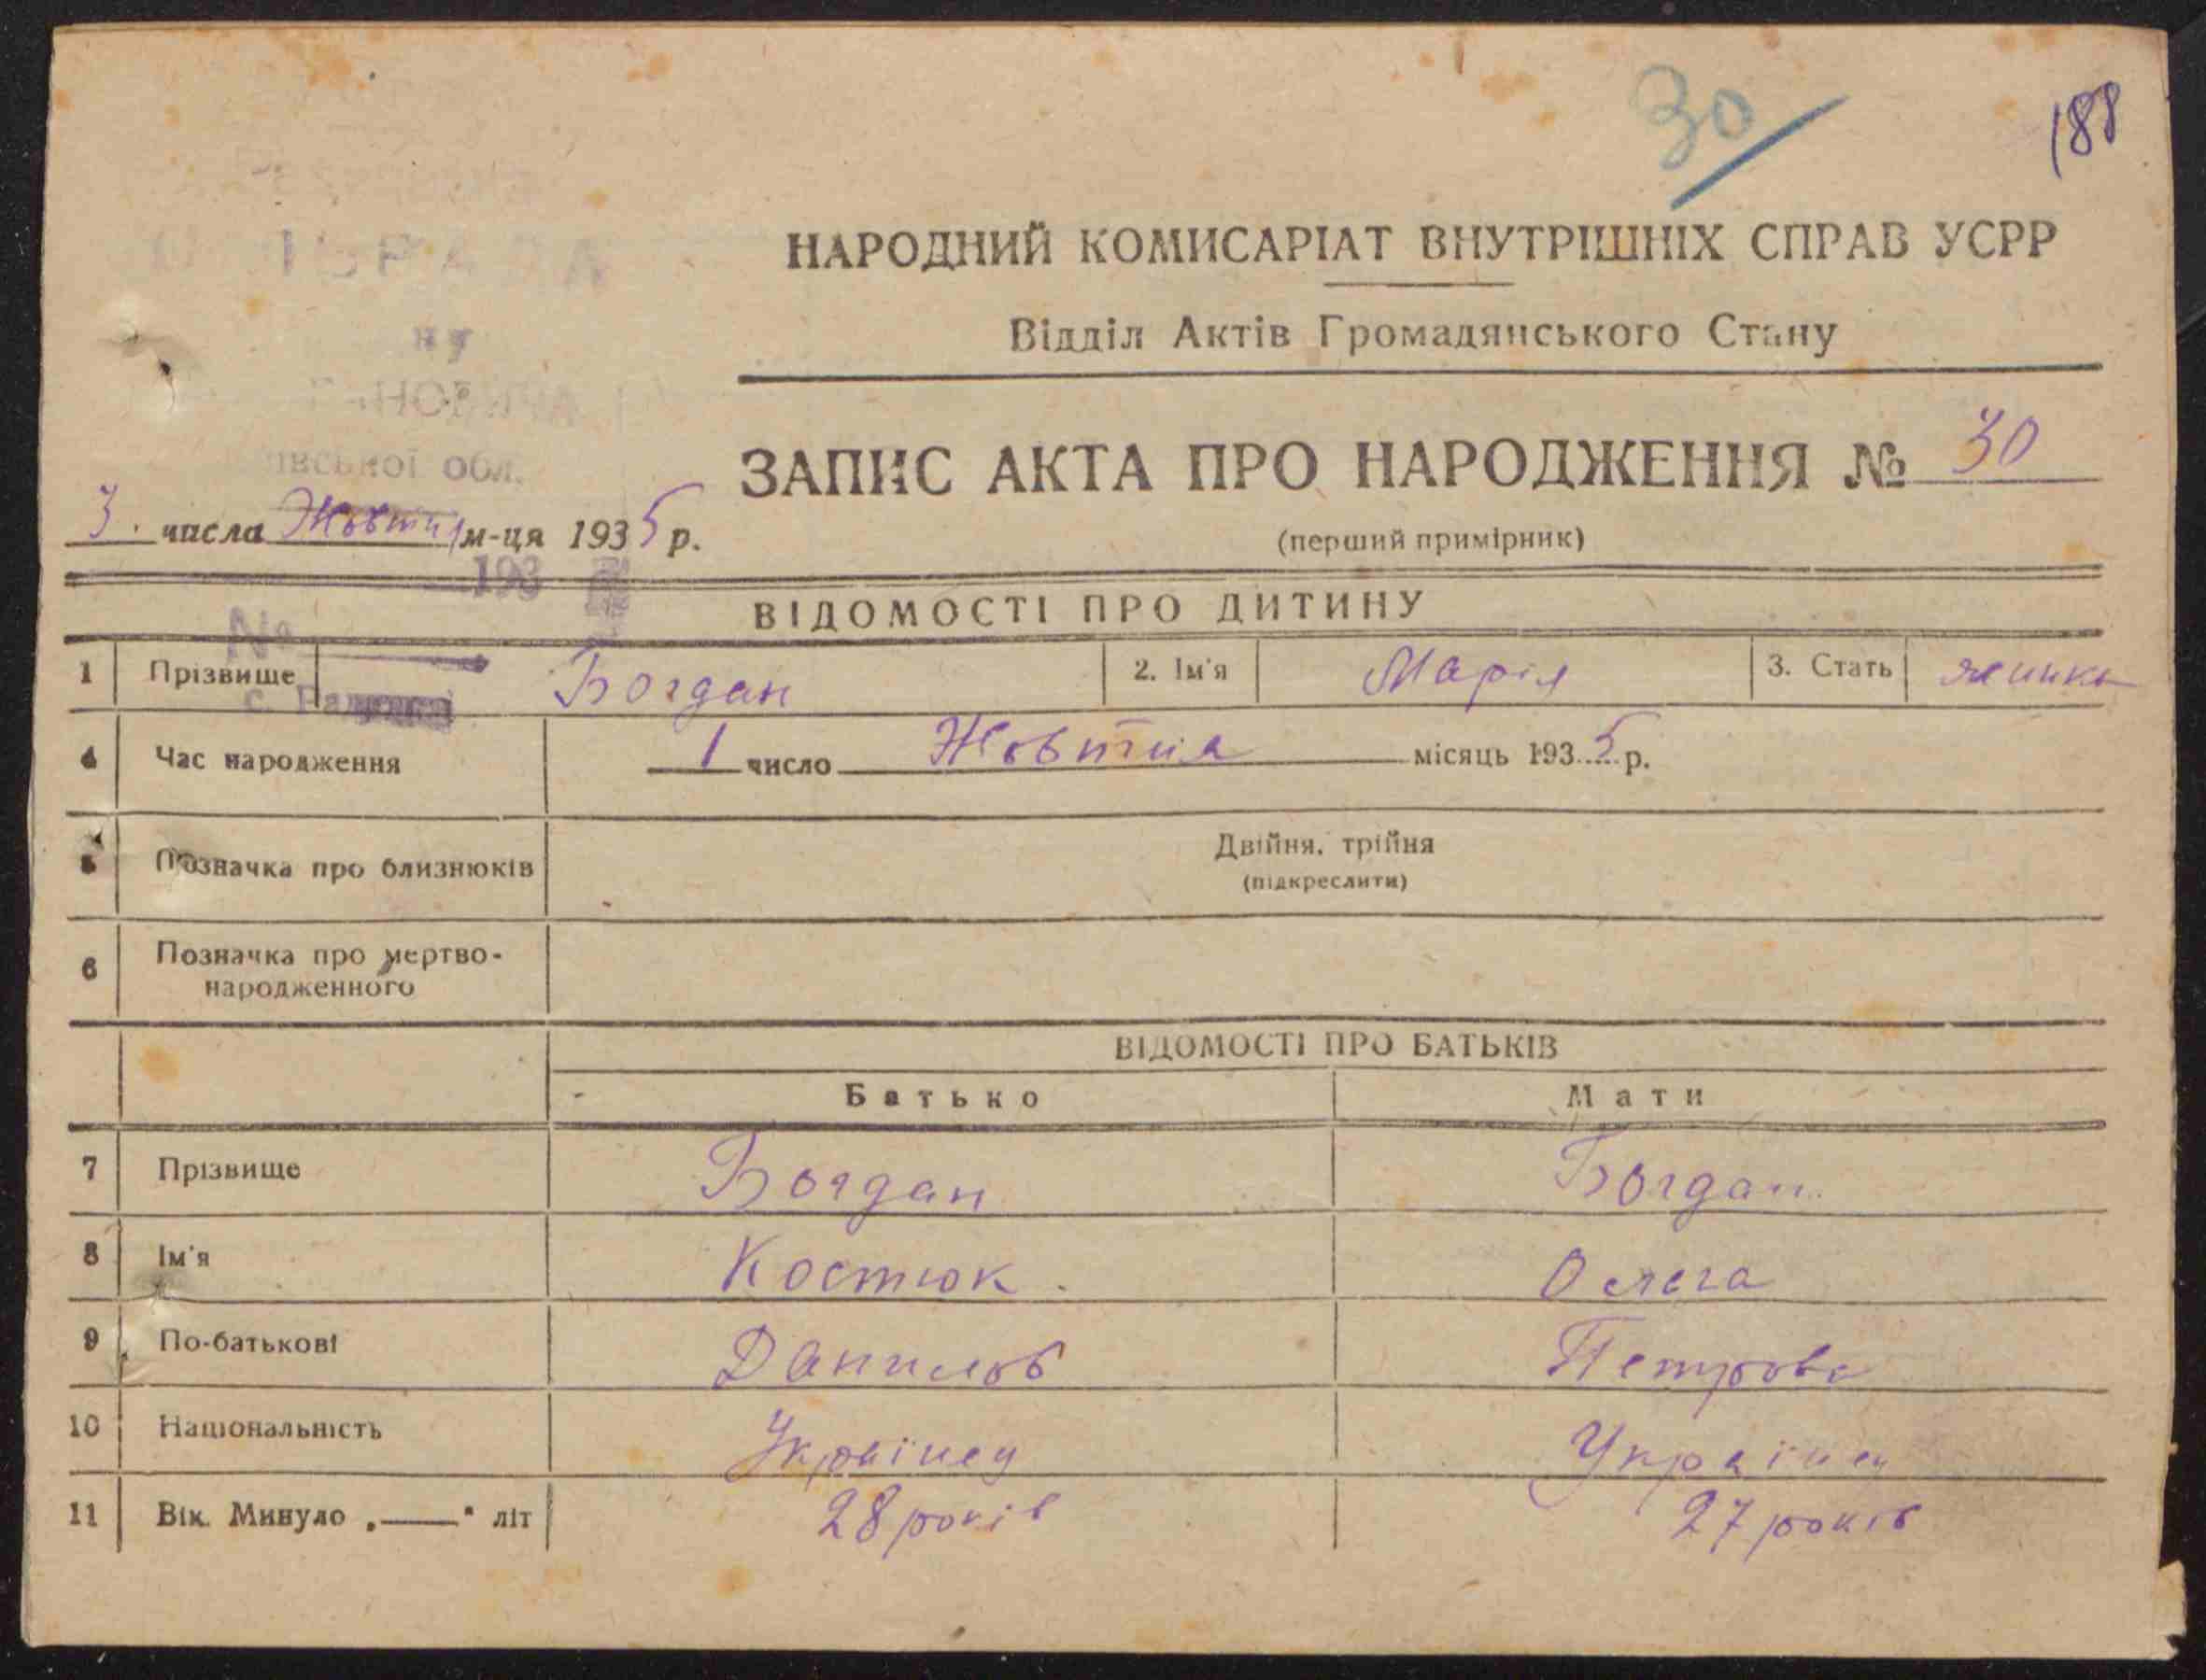 30
188
НАРОДНИЙ КОМИСАРІАТ ВНУТРІШНІХ СПРАВ УСРР
Відділ Актів Громадянського Стану
ЗАПИС АКТА ПРО НАРОДЖЕННЯ № 30
обл.
3. числа Жовтня м-ця 1935 р.
(перший примірник)
193
ВІДОМОСТІ ПРО ДИТИНУ
№
1 Прізвище Богдан 2. Ім'я Марія 3. Стать
с.
4 Час народження 1 число Жовтня місяць 1935 р.
5 Позначка про близнюків Двійня, трійня
(підкреслити)
6 Позначка про мертво-
народженного
ВІДОМОСТІ ПРО БАТЬКІВ
Батько Мати
7 Прізвище Богдан Богдан
8 Ім'я Костюк Ольга
9 По-батькові Данилов Петрова
10 Національність Українец Українец
11 Вік. Минуло „——" літ 28 років 27 років